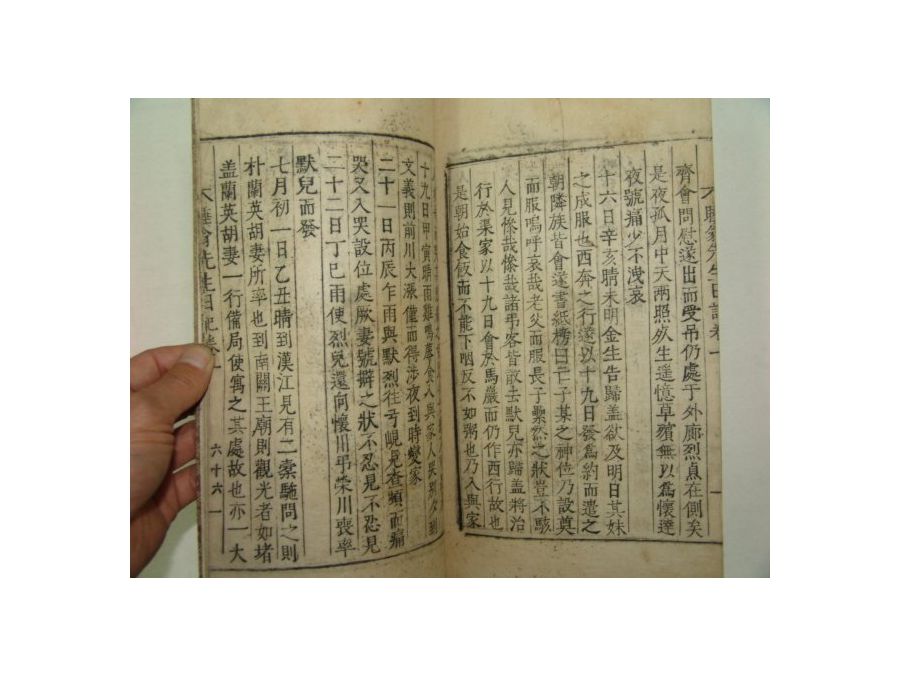 齊會問慰遂出而受吊仍處于外廊烈點在側矣
是夜孤月中天兩照生遥憶草殯無以爲懷達
夜號痛少不洩哀
十六日辛亥晴未明金生告歸盖欲及明日其妹
之成服也西奔之行遂以十九日發爲約而遣之
朝隣族皆會遂書紙榜曰亡子某之神位乃設奠
而服嗚呼哀哉老父而服長子之狀豈不駭
人見慘哉慘哉諸弔客皆散去默兒亦歸盖將治
行於渠家以十九日會於馬巖而仍作西行故也
是朝始食飯而不能下咽反不如粥也乃入與家
十九日甲寅晴雨雞鳴蓐食入與家人哭別夕到
文義則前川大漲僅而得涉夜到時變家
二十一日丙辰乍雨與默烈往弓峴見查頻而痛
哭又入哭設位處厥妻號擗之狀不忍見不忍見
二十二日丁巳雨使烈兒還向懷川弔榮川喪率
默兒而發
七月初一日乙丑晴到漢江見有二橐駝問之則
朴蘭英胡妻所率也到南關王廟則觀光者如堵
盖蘭英胡妻一行備局使寓之其處故也亦一大
先生日記卷一 六十六